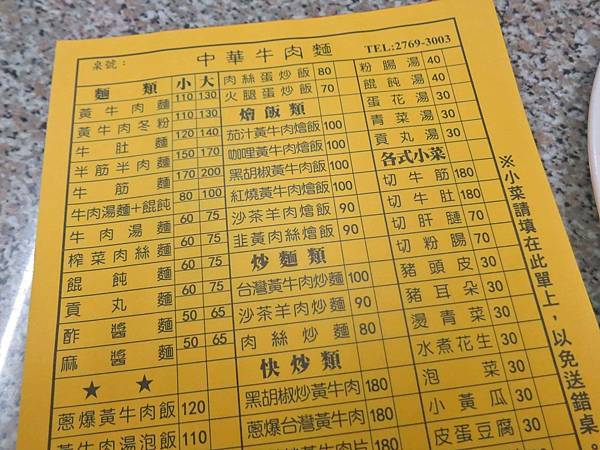 桌號：
中華牛肉麵
TEL:2769-3003
麵類 小 大
黃牛肉麵 110 130
黃牛肉冬粉 110 130
牛肚麵 120 140
半筋半肉麵 150 170
牛筋麵 170 200
牛肉湯麵+餛飩 80 100
牛肉湯麵 60 75
榨菜肉絲麵 60 75
餛飩麵 60 75
貢丸麵 60 75
酢醬麵 50 65
麻醬麵 50 65
★ ★
蔥爆黃牛肉飯 120
黃牛肉湯泡飯 110
肉絲蛋炒飯 80
火腿蛋炒飯 70
燴飯類
茄汁黃牛肉燴飯 100
咖哩黃牛肉燴飯 100
黑胡椒黃牛肉燴飯 100
紅燒黃牛肉燴飯 100
沙茶羊肉燴飯 90
韭黃肉絲燴飯 90
炒麵類
台灣黃牛肉炒麵 100
沙茶羊肉炒麵 90
肉絲炒麵 80
快炒類
黑胡椒炒黃牛肉 180
蔥爆台灣黃牛肉 180
黃牛肉片 180
粉腸湯 40
餛飩湯 40
蛋花湯 30
青菜湯 30
貢丸湯 30
各式小菜
切牛筋 180
切牛肚 180
切肝腱 70
切粉腸 70
豬頭皮 30
豬耳朵 30
燙青菜 30
水煮花生 30
泡菜 30
小黃瓜 30
皮蛋豆腐 30
※小菜請填在此單上，以免送錯桌。